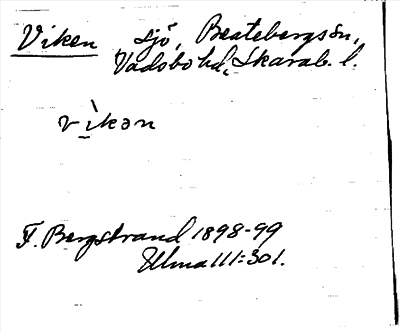 Viken sjö, Beatebergssn,
Vadsbo hd, Skarab. l.
vìkən
F. Bergstrand 1898-99
Ulma 111:301.